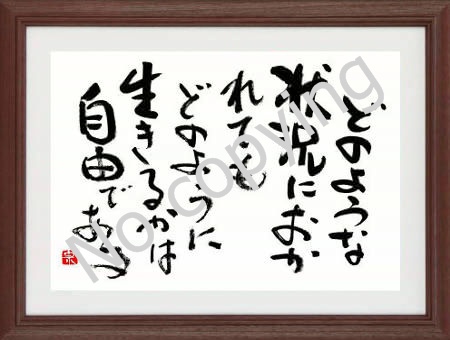 どのような
状況におか
れても
どのように
生きるかは
自由である
No copying